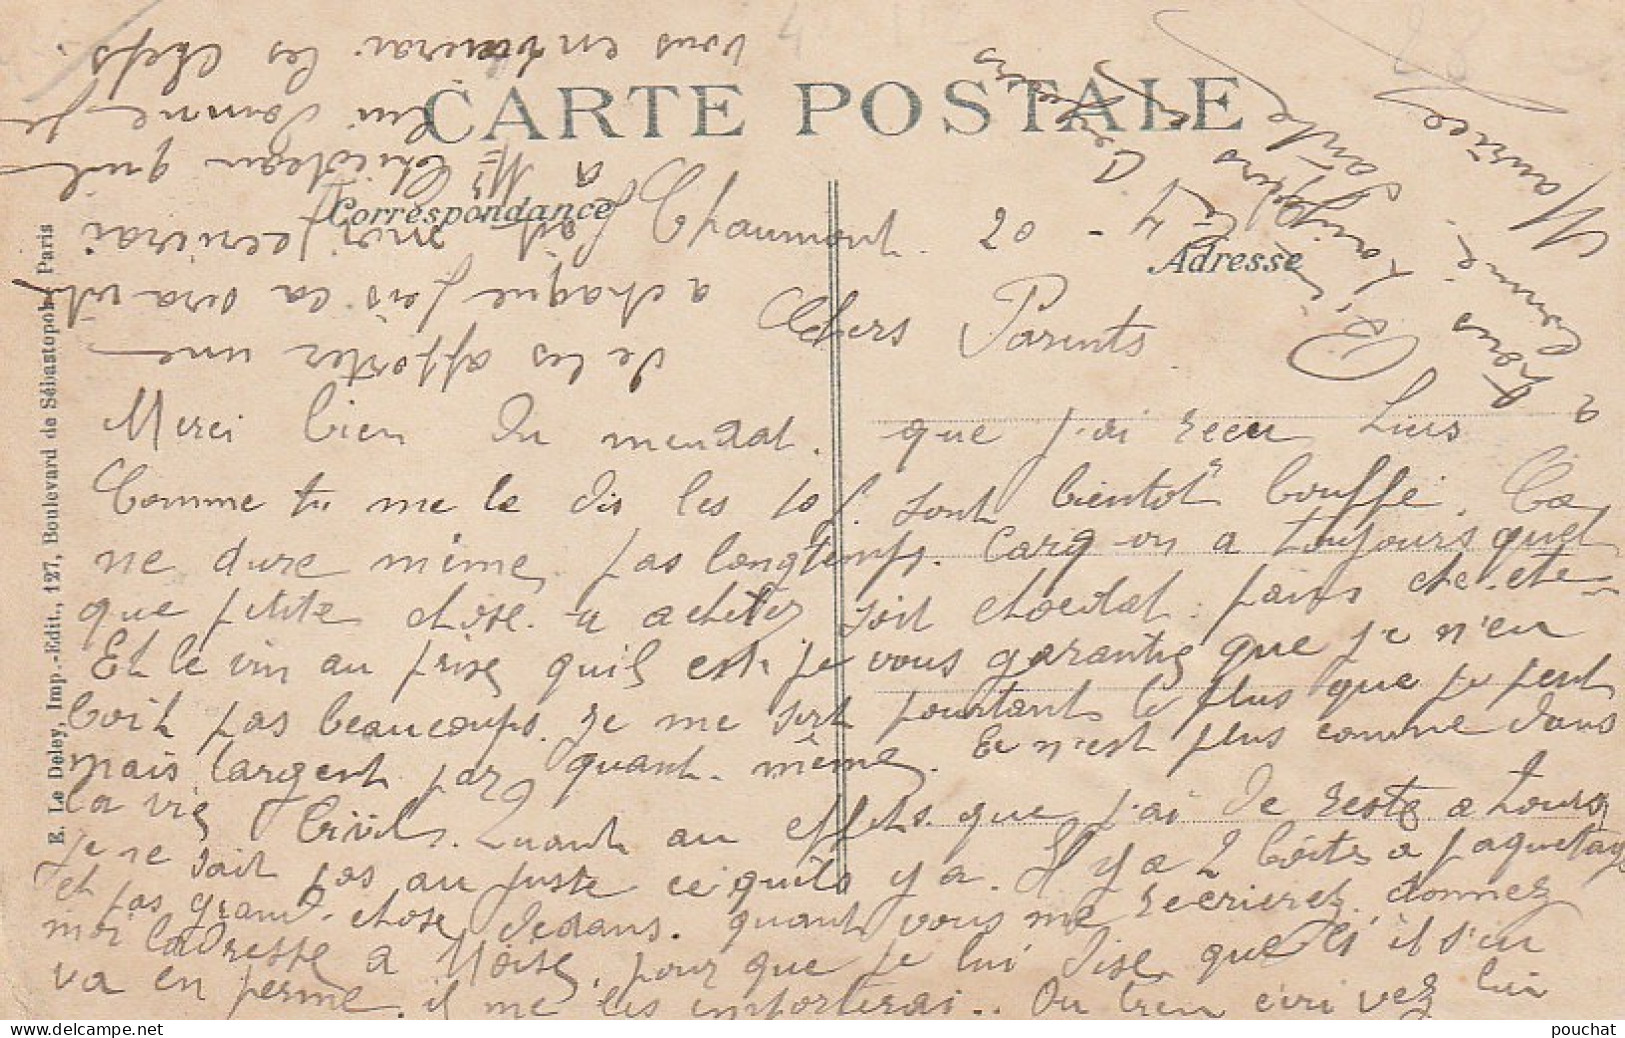 CARTE POSTALE
Correspondance
Adresse
E. Le Deley, Imp.-Edit., 127, Boulevard de Sébastopol, Paris
Chaumont. 20 - 4
Chers Parents
Merci bien du mendat. que j'ai recu
Comme tu me le dis les 10f. sont bientot bouffé. Ca
ne dure même pas longtemps. Car on a toujours quel
que petite chose a acheter soit chocolat. pains
Et le vin au prix quil est. je vous garantie que je n'en
boit pas beaucoups. je me sert pourtant le plus que je peut
mais largent par quant même. Ce n'est plus comme dans
la vie Civile. Quant au effets que j'ai de reste a Tours
je ne sait pas au juste ce quils y a. Il y a 2 boites a paquetage
et pas grand chose dedans. quant vous me recrierez, donnez
moi ladresse a Moïse, pour que je lui dise que s'il s'en
va en perme il me les importerai.. Ou bien ecrivez lui
de les apporter une
a chaque fois ca sera vite
fait moi j'ecrirai
a Mr Chicoteau quil
lui donne je
vous enverrai les clefs.
Maurice